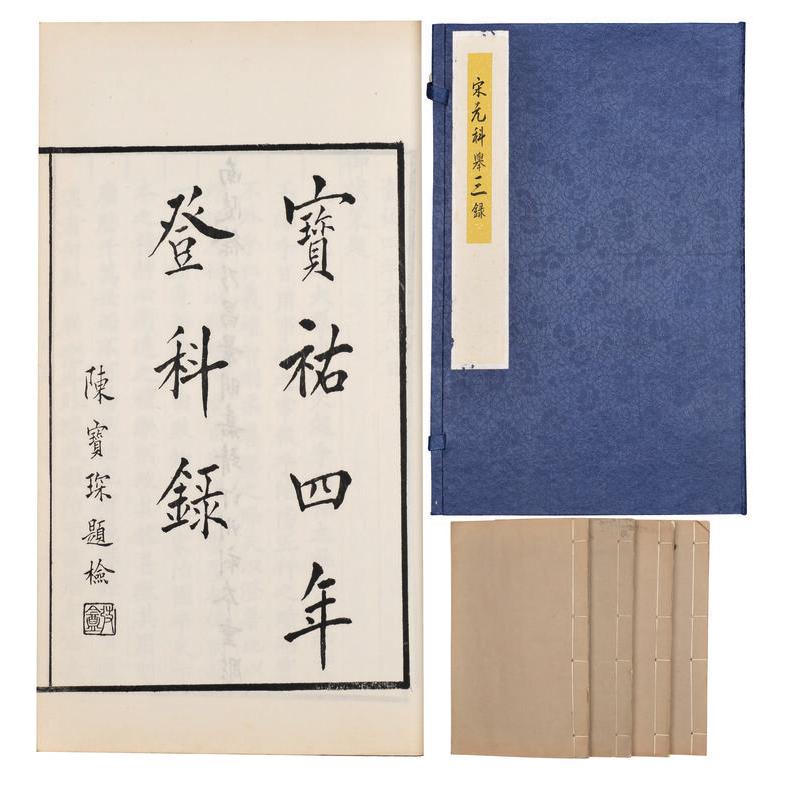 寶祐四年
登科錄
陳寶琛題檢
宋元科舉三錄